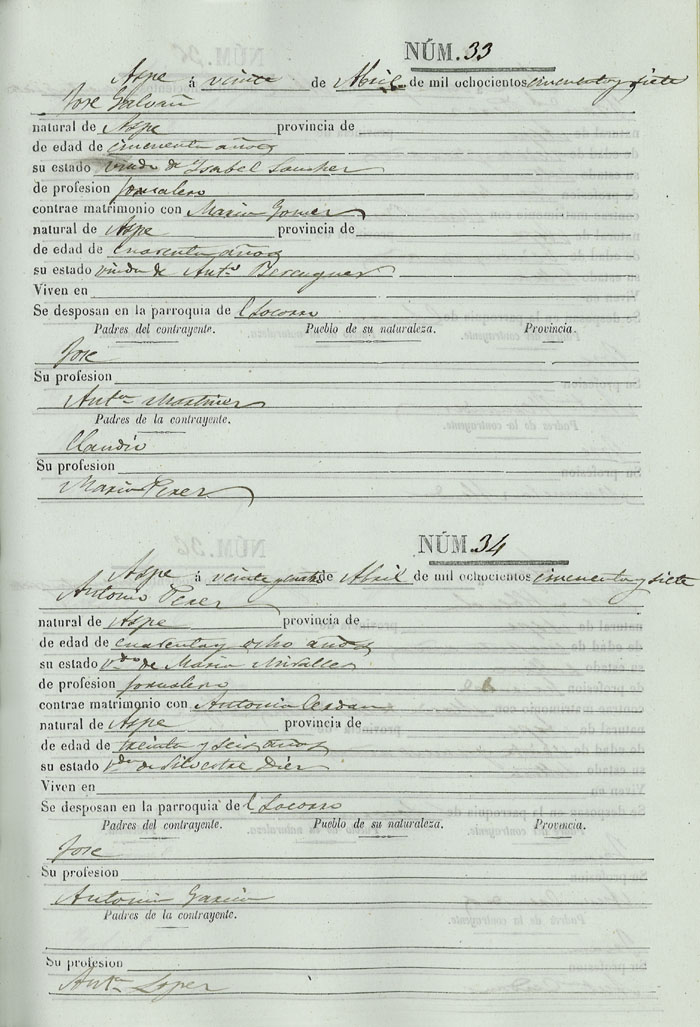 NÚM. 33
Aspe á veinte de Abril de mil ochocientos cincuenta y siete
Jose Galvañ
natural de Aspe provincia de
de edad de cincuenta años
su estado viudo de Ysabel Sanchez
de profesion Jornalero
contrae matrimonio con Maria Gomez
natural de Aspe provincia de
de edad de cuarenta años
su estado viuda de Antº Berenguer
Viven en
Se desposan en la parroquia de l Socorro
Padres del contrayente. Pueblo de su naturaleza. Provincia.
Jose
Su profesion
Antª Martinez
Padres de la contrayente.
Claudio
Su profesion
Maria Perez
NÚM. 34
Aspe á veinte y cuatro de Abril de mil ochocientos cincuenta y siete
Antonio Perez
natural de Aspe provincia de
de edad de cuarenta y ocho años
su estado Vdo de Maria Miralles
de profesion Jornalero
contrae matrimonio con Antonia Cerdan
natural de Aspe provincia de
de edad de treinta y seis años
su estado Vda de Silvestre Diez
Viven en
Se desposan en la parroquia de l Socorro
Padres del contrayente. Pueblo de su naturaleza. Provincia.
Jose
Su profesion
Antonia Garcia
Padres de la contrayente.
Su profesion
Antª Lopez